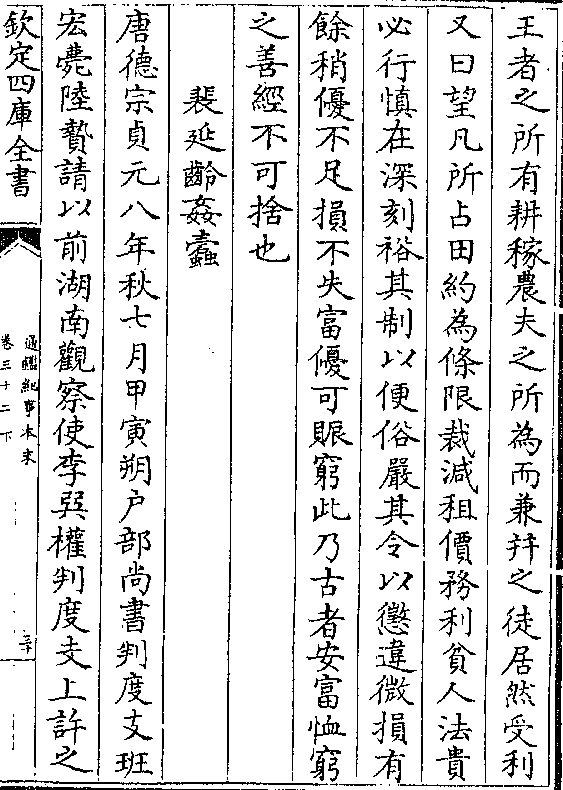 王者之所有耕稼農夫之所為而兼并之徒居然受利
又曰望凡所占田約為條限裁減租價務利貧人法貴
必行慎在深刻裕其制以便俗嚴其令以懲違微損有
餘稍優不足損不失富優可賑窮此乃古者安富恤窮
之善經不可捨也
裴延齡姦蠹
唐德宗貞元八年秋七月甲寅朔户部尚書判度支班
宏薨陸贄請以前湖南觀察使李巽權判度支上許之
欽定四庫全書
通鑑紀事本末
卷三十二下